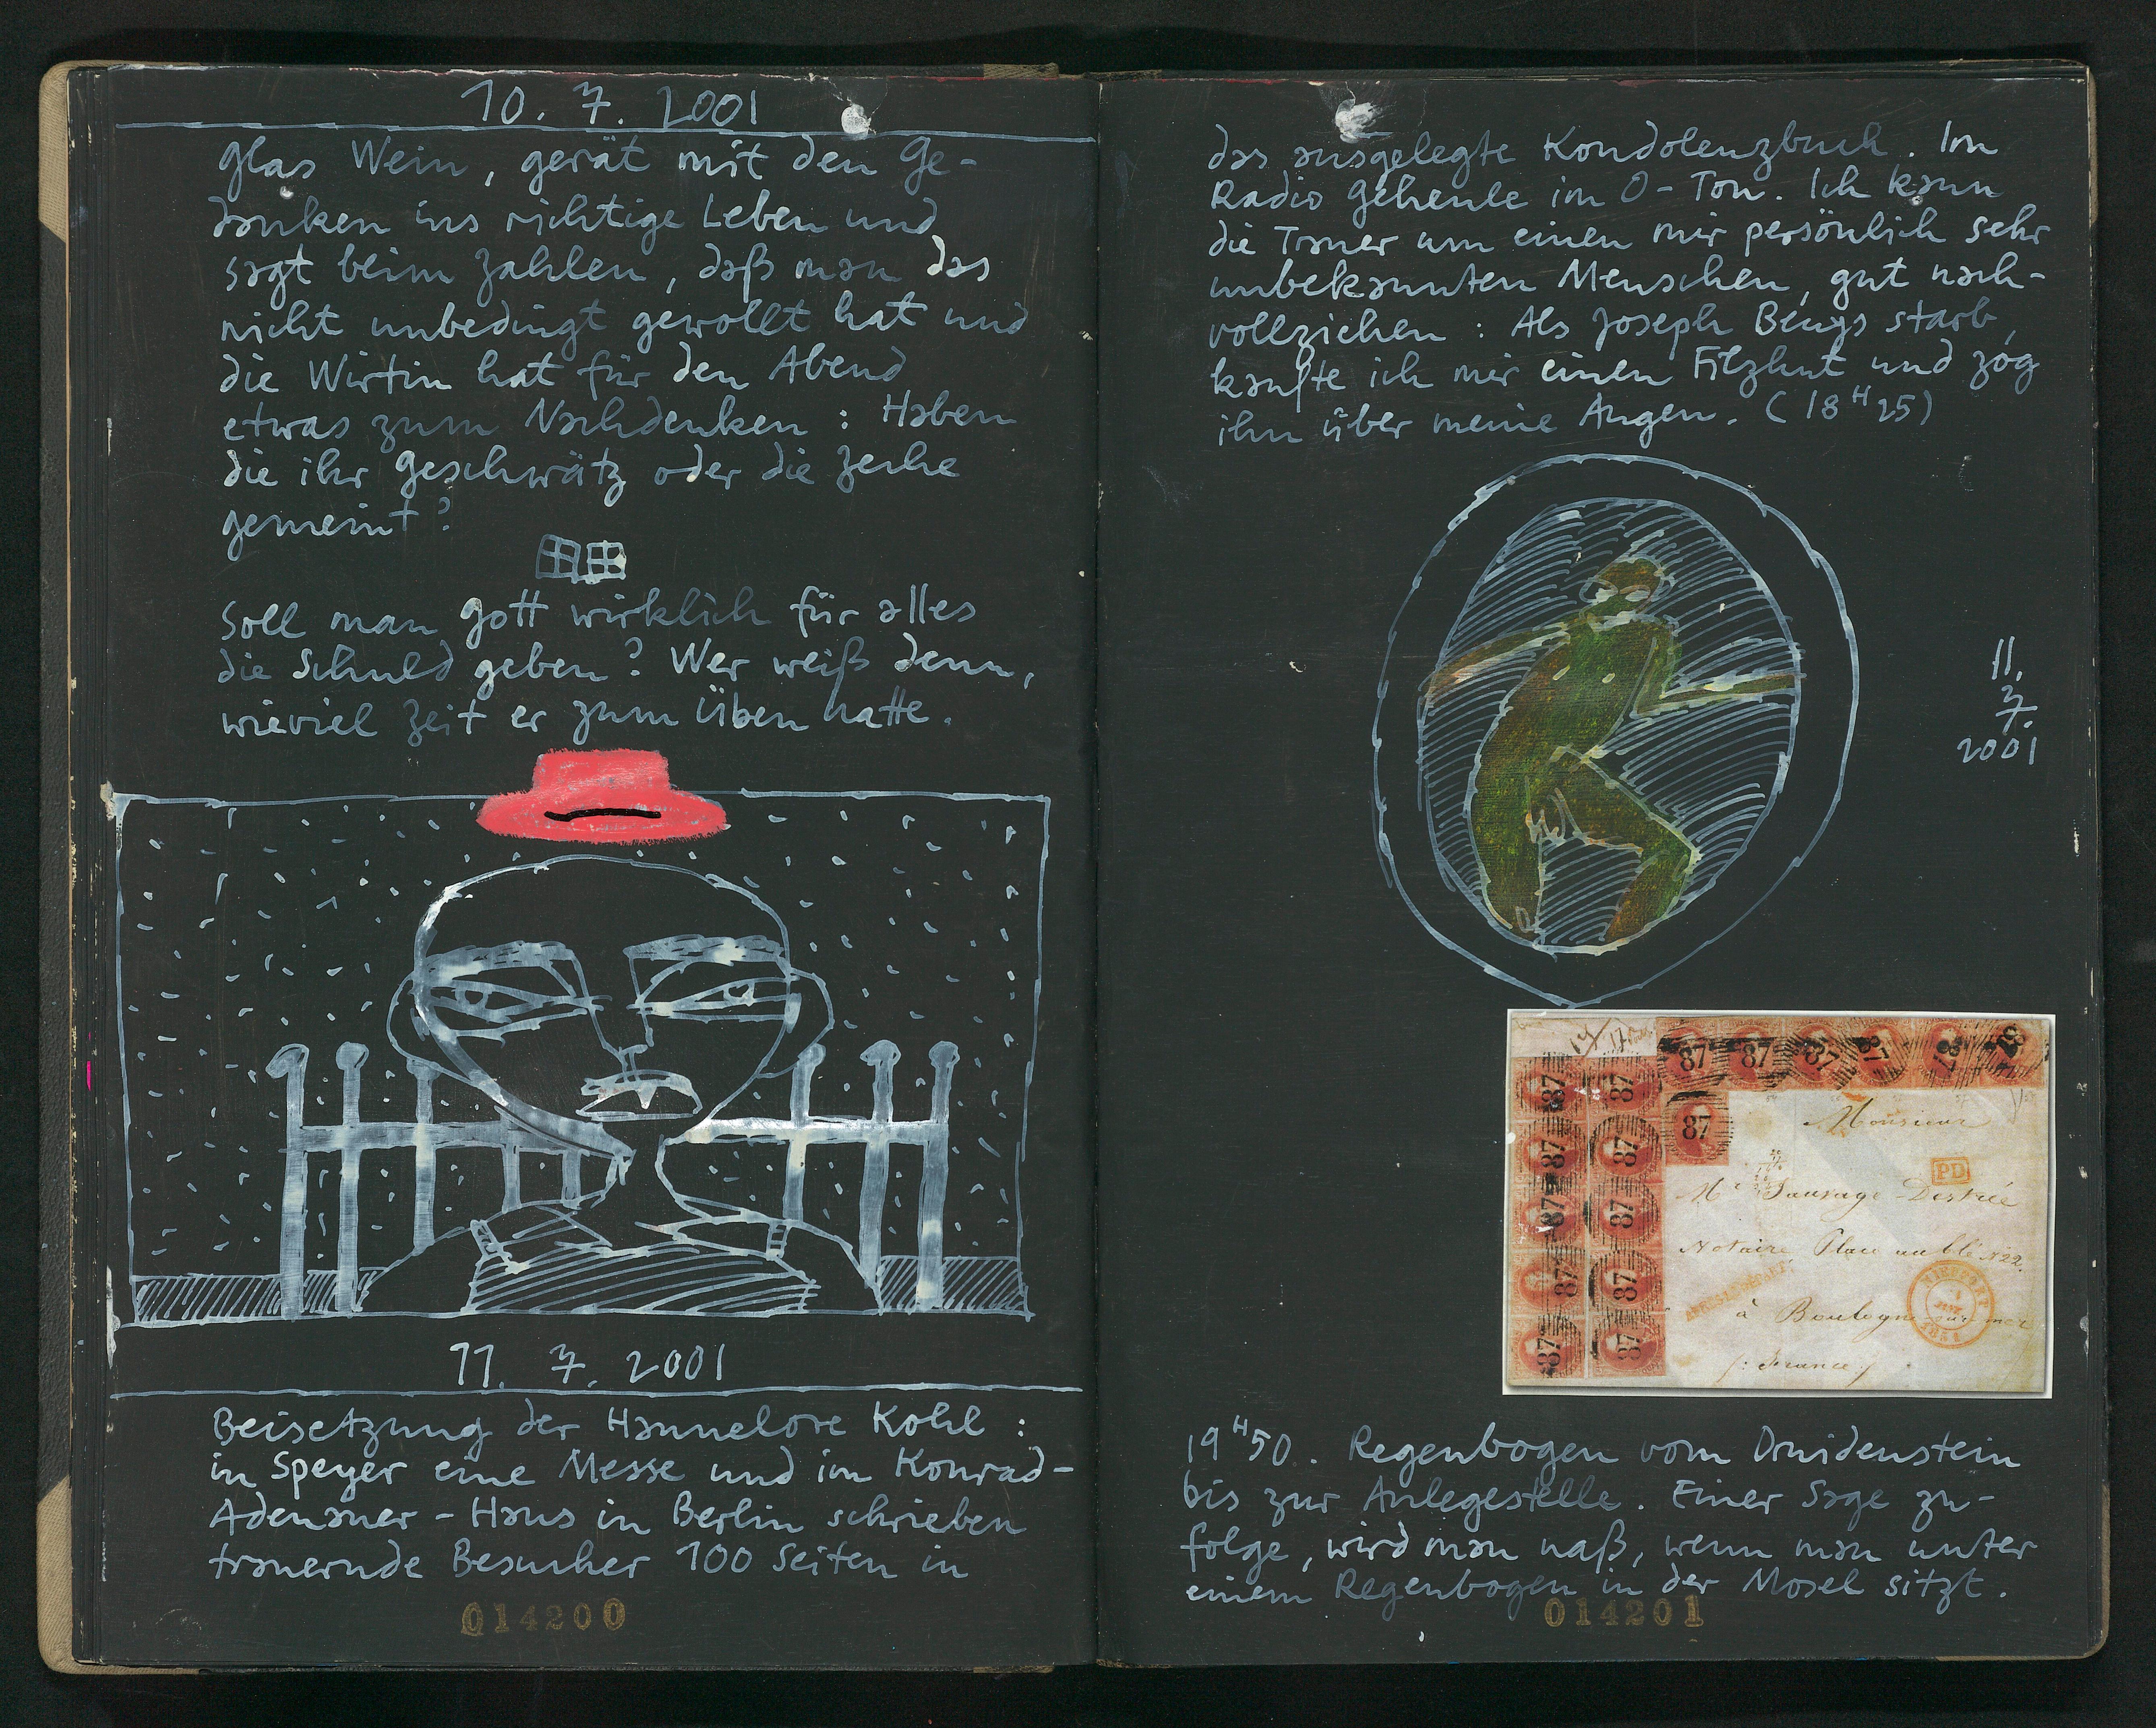 10. 7. 2001
Glas Wein, gerät mit den Ge-
danken ins richtige Leben und
sagt beim Zahlen, daß man das
nicht unbedingt gewollt hat und
die Wirtin hat für den Abend
etwas zum Nachdenken: Haben
die ihr Geschwätz oder die Zeche
gemeint?
Soll man Gott wirklich für alles
die Schuld geben? Wer weiß denn,
wieviel Zeit er zum Üben hatte.
11. 7. 2001
Beisetzung der Hannelore Kohl:
in Speyer eine Messe und im Konrad-
Adenauer-Haus in Berlin schrieben
trauernde Besucher 100 Seiten in
014200
das ausgelegte Kondolenzbuch. Im
Radio Geheule im O-Ton. Ich kann
die Trauer um einen mir persönlich sehr
unbekannten Menschen, gut nach-
vollziehen: Als Joseph Beuys starb,
kaufte ich mir einen Filzhut und zog
ihn über meine Augen. (18H25)
11.
7.
2001
87 87 87 87 87 87
87 87
87
87 87
87 87
87 87
87 87
Monsieur
PD
Mr Sauvage-Destrée
Notaire, Place au blé N 22.
APRES LE DEPART
à Boulogne sur mer
1851
/: France :/
19H50. Regenbogen vom Druidenstein
bis zur Anlegestelle. Einer Sage zu-
folge, wird man naß, wenn man unter
einem Regenbogen in der Mosel sitzt.
014201